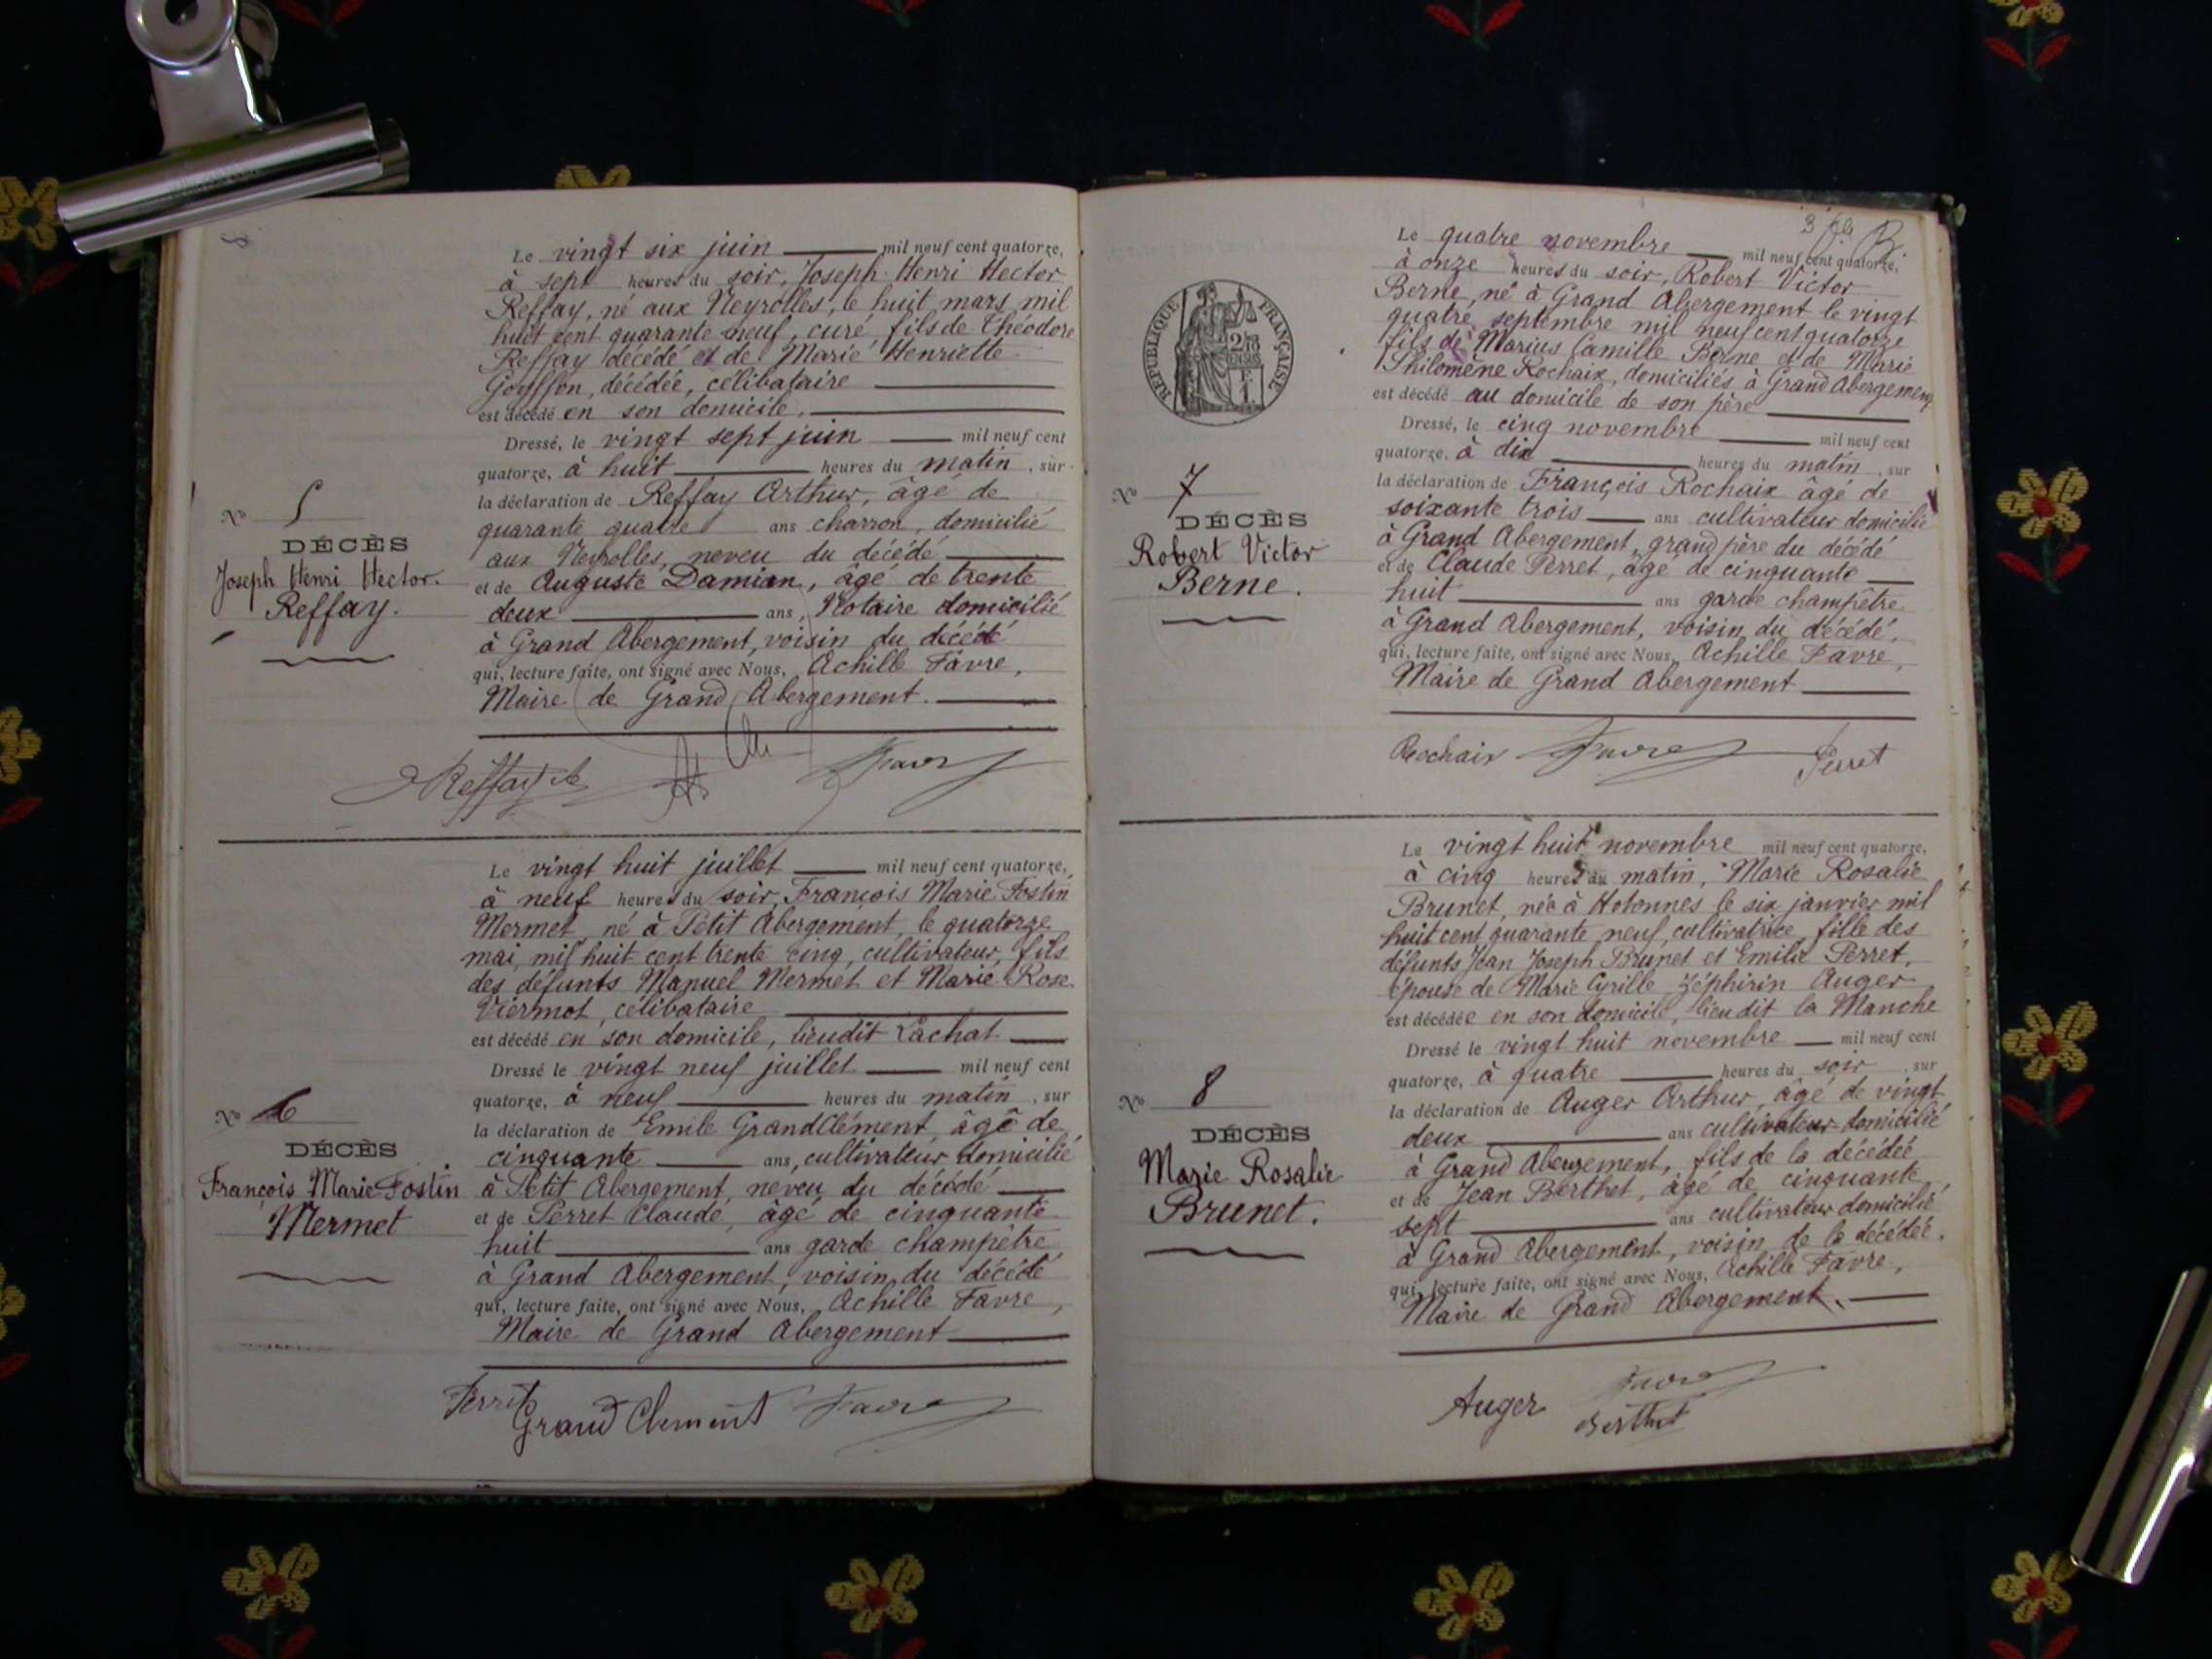 Nº 5
DÉCÈS
Joseph Henri Hector.
Reffay.
Le vingt six juin mil neuf cent quatorze,
à sept heures du soir, Joseph Henri Hector
Reffay, né aux Neyrolles, le huit mars mil
huit cent quarante neuf, curé, fils de Théodore
Reffay décédé et de Marie Henriette
Gouffon, décédée, célibataire
est décédé en son domicile,
Dressé, le vingt sept juin mil neuf cent
quatorze, à huit heures du matin, sur
la déclaration de Reffay Arthur, âgé de
quarante quatre ans charron, domicilié
aux Neyrolles, neveu du décédé
et de Auguste Damian, âgé de trente
deux ans, Notaire domicilié
à Grand Abergement, voisin du décédé
qui, lecture faite, ont signé avec Nous, Achille Favre,
Maire de Grand Abergement.
Reffay Favre
Nº 6
DÉCÈS
François Marie Fostin
Mermet
Le vingt huit juillet mil neuf cent quatorze,
à neuf heures du soir, François Marie Fostin
Mermet, né à Petit Abergement, le quatorze
mai, mil huit cent trente cinq, cultivateur, fils
des défunts Manuel Mermet et Marie Rose
Viermot, célibataire
est décédé en son domicile, lieudit Lachat
Dressé le vingt neuf juillet mil neuf cent
quatorze, à neuf heures du matin, sur
la déclaration de Emile GrandClément, âgé de
cinquante ans, cultivateur domicilié
à Petit Abergement, neveu du décédé
et de Perret Claude, âgé de cinquante
huit ans garde champêtre
à Grand Abergement, voisin du décédé
qui, lecture faite, ont signé avec Nous, Achille Favre,
Maire de Grand Abergement
Perret Grand Clement Favre
3
RÉPUBLIQUE FRANÇAISE
Nº 7
DÉCÈS
Robert Victor
Berne.
Le quatre novembre mil neuf cent quatorze,
à onze heures du soir, Robert Victor
Berne, né à Grand Abergement le vingt
quatre septembre mil neuf cent quatorze
fils de Marius Camille Berne et de Marie
Philomène Rochaix, domiciliés à Grand Abergement
est décédé au domicile de son père
Dressé, le cinq novembre mil neuf cent
quatorze, à dix heures du matin, sur
la déclaration de François Rochaix âgé de
soixante trois ans cultivateur domicilié
à Grand Abergement, grand père du décédé
et de Claude Perret, âgé de cinquante
huit ans garde champêtre
à Grand Abergement, voisin du décédé,
qui, lecture faite, ont signé avec Nous, Achille Favre,
Maire de Grand Abergement
Rochaix Favre Perret
Nº 8
DÉCÈS
Marie Rosalie
Brunet.
Le vingt huit novembre mil neuf cent quatorze,
à cinq heures du matin, Marie Rosalie
Brunet, née à Hotonnes le six janvier mil
huit cent quarante neuf, cultivatrice, fille des
défunts Jean Joseph Brunet et Emilie Perret,
épouse de Marie Cyrille Zéphirin Auger
est décédée en son domicile, lieu dit la Manche
Dressé le vingt huit novembre mil neuf cent
quatorze, à quatre heures du soir, sur
la déclaration de Auger Arthur, âgé de vingt
deux ans cultivateur domicilié
à Grand Abergement, fils de la décédée
et de Jean Berthet, âgé de cinquante
sept ans cultivateur domicilié
à Grand Abergement, voisin de la décédée.
qui, lecture faite, ont signé avec Nous, Achille Favre,
Maire de Grand Abergement.
Auger Favre
Berthet